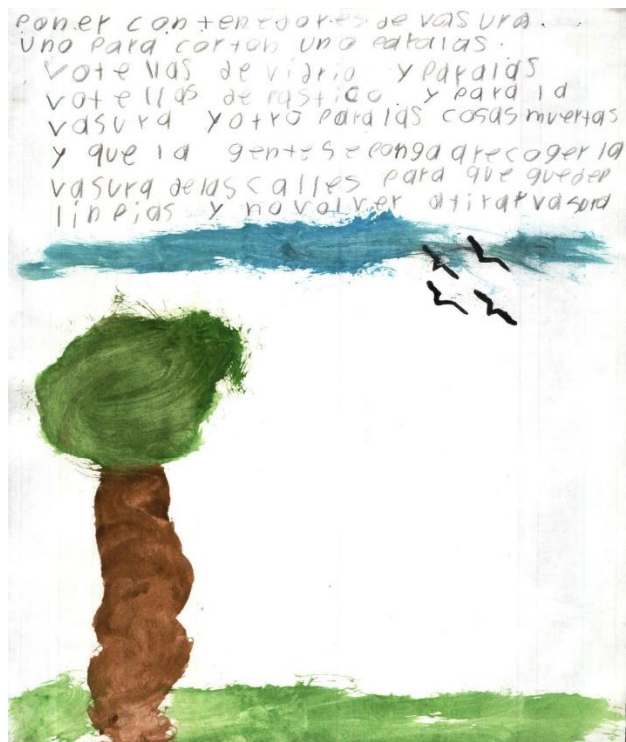 poner contenedores de vasura.
uno para corton uno paralas.
votellas de vidrio y paralas
votellas de rastico y para la
vasura y otro para las cosas muertas
y que la gente se ponga a recoger la
vasura de las calles para que queden
linpias y no volver a tirar vasura